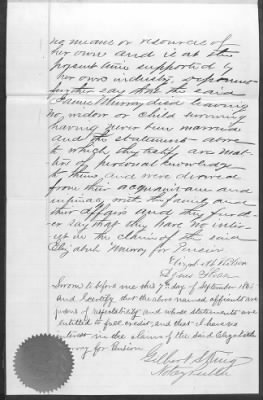 no means or resources of
her own and is at the
present time supported by
her own industry. Deponents
further say that the said
James Murray died leaving
no widow or child surviving
having never been married
and the statements above
to which they testify are mat-
ters of personal knowledge
to them, and were derived
from their acquaintance and
intimacy with the family and
their affairs and they furth-
er say that they have no inter-
est in the claim of the said
Elizabeth Murray for Pension
Elizabeth
Agnes
Sworn to before me this 9th day of September 1886
and I certify that the above named affiants are
persons of respectability and whose statements are
entitled to full credit, and that I have no
interest in the claim of the said Elizabeth
Murray for Pension.
Gilbert
Notary Public